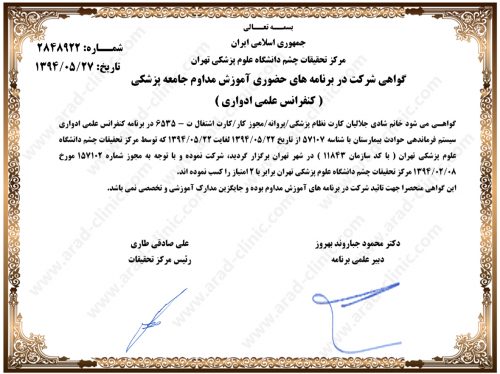 بسمه تعالی
جمهوری اسلامی ایران
مرکز تحقیقات چشم دانشگاه علوم پزشکی تهران
شماره: ۲۸۴۸۹۲۲
تاریخ: ۱۳۹۴/۰۵/۲۷
گواهی شرکت در برنامه های حضوری آموزش مداوم جامعه پزشکی
( کنفرانس علمی ادواری )
گواهسی می شود خانم شادی جلالیان کارت نظام پزشکی/پروانه/مجوز کار/کارت اشتغال ت - ۶۵۳۵ در برنامه کنفرانس علمی ادواری
سیستم فرماندهی حوادث بیمارستان با شناسه ۵۷۱۰۷ از تاریخ ۱۳۹۴/۰۵/۲۲ لغایت ۱۳۹۴/۰۵/۲۲ که توسط مرکز تحقیقات چشم دانشگاه
علوم پزشکی تهران ( با کد سازمان ۱۱۸۴۳ ) در شهر تهران برگزار گردید، شرکت نموده و با توجه به مجوز شماره ۱۵۷۱۰۲ مورخ
۱۳۹۴/۰۲/۰۸ مرکز تحقیقات چشم دانشگاه علوم پزشکی تهران برابر با ۲ امتیاز را کسب نموده اند.
این گواهی منحصرا جهت تائید شرکت در برنامه های آموزش مداوم بوده و جایگزین مدارک آموزشی و تخصصی نمی باشد.
دکتر محمود جباروند بهروز
دبیر علمی برنامه
علی صادقی طاری
رئیس مرکز تحقیقات
www.arad-clinic.com